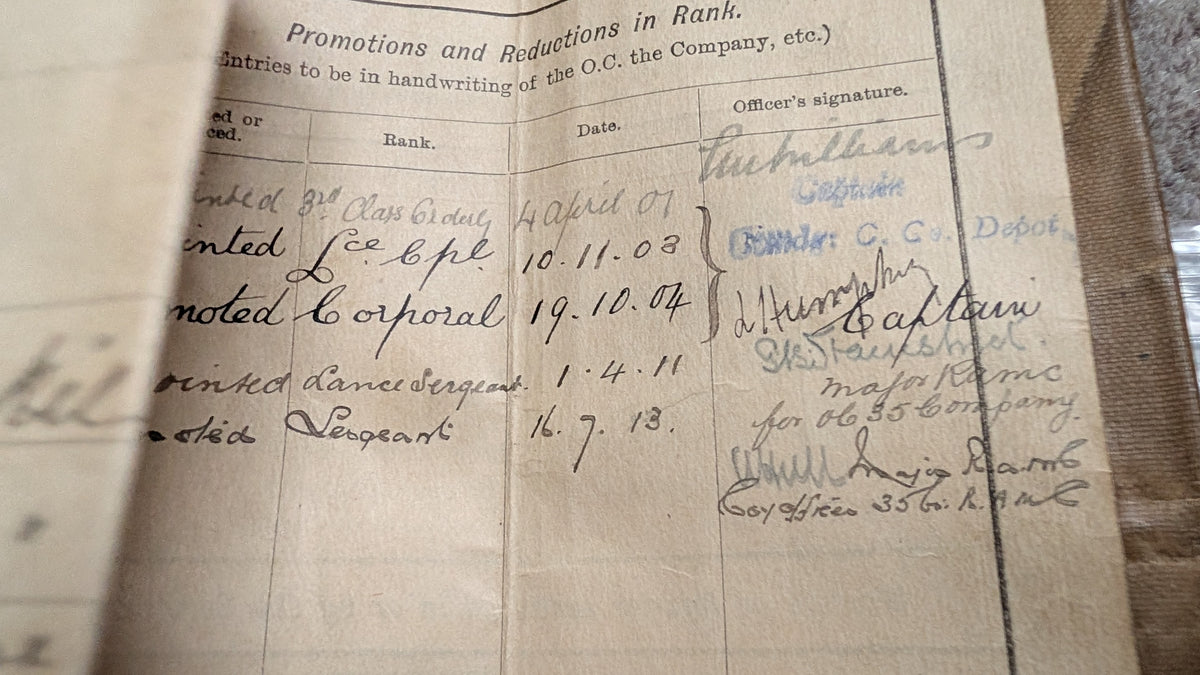 Promotions and Reductions in Rank.
Entries to be in handwriting of the O.C. the Company, etc.)
ed or
ced.
Rank.
Date.
Officer's signature.
inted 3rd Class Orderly 4 april 01
Captain
inted Lce Cpl 10.11.03
Comdr: C. Co. Depot.
moted Corporal 19.10.04
Humphry
Captain
ointed Lance Sergeant. 1.4.11
major Ramc
for OC 35 Company.
oted Sergeant 16.7.13.
Major R.A.M.C
Coy Officer 35 Co. R.A.M.C